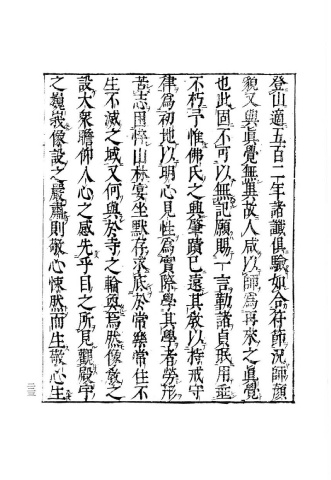 登山適五百二年諸讖俱驗如合符節況師顏
貌又與眞覺無異故人咸以師爲再來之眞覺
也此固不可以無記願賜一言勒諸貞珉用垂
不朽予惟佛氏之興肇蹟已遠其敎以持戒守
律爲初地以明心見性爲實際學其學者勞形
苦志田樵山林宴坐默存求底於常樂常住不
生不滅之域又何與於寺之輪奐焉然像敎之
設大衆瞻仰人心之感先乎目之所見觀殿宇
之巍峩像設之嚴肅則敬心悚然而生敬心生
三三